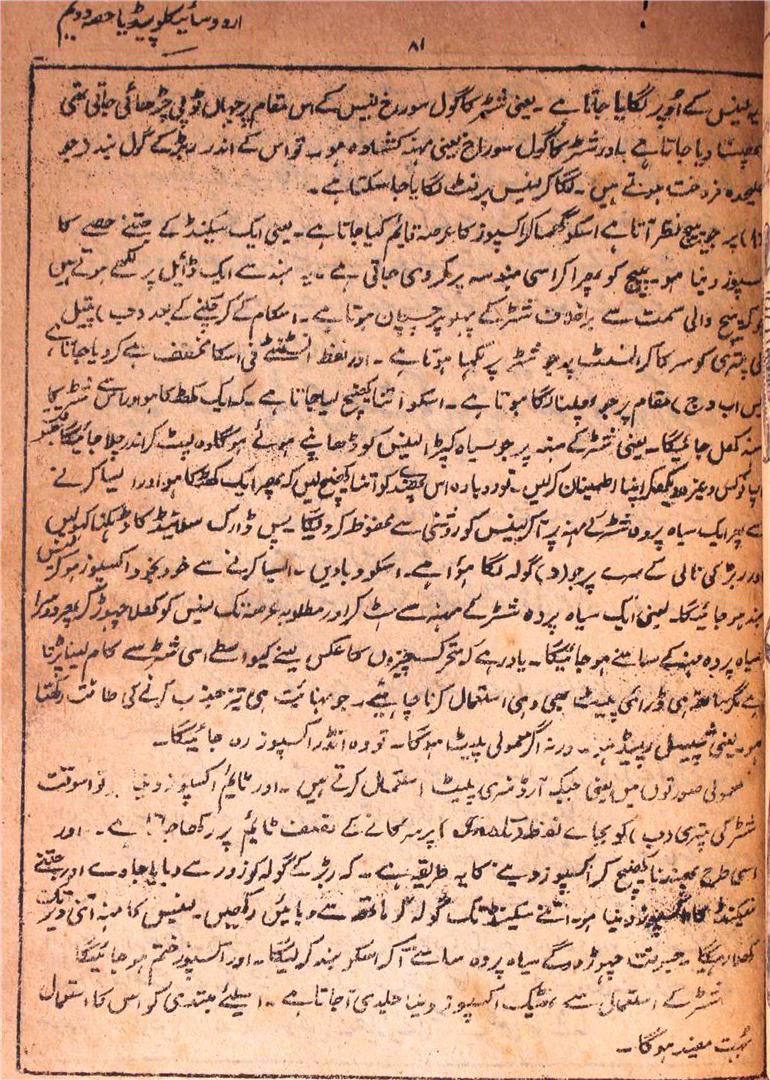 اردو سائیکلوپیڈیا حصہ دوئم
۸۱
لینس کے اُوپر لگایا جاتا ہے ۔ یعنی شٹر کا گول سوراخ لینس کے اس مقام پر جہاں ٹوپی چڑھائی جاتی تھی
پھنسا دیا جاتا ہے ۔ اور شٹر کا گول سوراخ یعنی مہنہ کشادہ ہو ۔ تو اس کے اندر ربڑ کے گول بند (جو
علیحدہ فروخت ہوتے ہیں ۔ لگا کر لینس پر فٹ لگایا جا سکتا ہے ۔
پر جو پیچ نظر آتا ہے اسکو گھما کر اکسپوز کا عرصہ قائم کیا جاتا ہے ۔ یعنی ایک سیکنڈ کے جتنے حصے کا
اکسپوز دینا ہو ۔ پیچ کو پھرا کر اسی ہندسہ پر کر دی جاتی ہے ۔ یہ ہندسے ایک ڈائیل پر لکھے ہوتے ہیں
جو کہ پیچ والی سمت سے برخلاف شٹر کے پہلو پر چسپان ہوتا ہے ۔ اسکام کے کر چکنے کے بعد (ب) پیتل
کی پتری کو سرکا کر انسٹ پر جو شٹر پر لکھا ہوتا ہے ۔ اور لفظ انسٹنٹے نی اسکا مخفف ہے کر دیا جاتا ہے ،
پس اب (ج) مقام پر جو پھندنا لگا ہوتا ہے ۔ اسکو اتنا کھینچ لیا جاتا ہے ۔ کہ ایک کھٹکا ہو اور اس سے شٹر کا
منہ کھل جائیگا ۔ یعنی شٹر کے منہ پر جو سیاہ کپڑا لینس کو ڈھانپے ہوئے ہوگا وہ لپٹ کر اندر چلا جائیگا
اپنا فوکس وغیرہ دیکھکر اپنا اطمینان کر لیں ۔ تو دوبارہ اس پھندنے کو اتنا کھینچ لیں کہ پھر ایک کھڑکا ہو اور ایسا کرنے
سے پھر ایک سیاہ پردہ شٹر کے مہنہ پر آ کر لینس کو روشنی سے محفوظ کر دیگا پس ڈارک سلائیڈ کا ڈھکنا کھولیں
اور ربڑ کی نالی کے سرے پر جو (د) گولہ لگا ہوا ہے ۔ اسکو دبا دیں ۔ ایسا کرنے سے خود بخود اکسپوز ہو کر لینس
بند ہو جائیگا ۔ یعنی ایک سیاہ پردہ شٹر کے مہنہ سے ہٹ کر اور مطلوبہ عرصہ تک لینس کو کھلا چھوڑ کر پھر دوسرا
سیاہ پردہ مہنہ کے سامنے ہو جائیگا ۔ یاد رہے کہ متحرک چیزوں کا عکس لینے کیواسطے اسی شٹر سے کام لینا پڑتا
ہے مگر ساتھ ہی ڈرائی پلیٹ بھی وہی استعمال کرنا چاہئیے ۔ جو نہائت ہی تیز جذب کرنے کی طاقت رکھتا
ہو ۔ یعنی شپیشل ریپڈ ہو ۔ ورنہ اگر معمولی پلیٹ ہوگا ۔ تو وہ انڈر اکسپوز رہ جائیگا ۔
معمولی صورتوں میں یعنی جبکہ آرڈنری پلیٹ استعمال کرتے ہیں ۔ اور ٹائم اکسپوز دینا ہو تو اسوقت
شٹر کی پتری (ب) کو بجائے لفظ پر سرکانے کے لفظ ٹائیم پر رکھا جاتا ہے ۔ اور
اسی طرح پھندنا کھینچ کر اکسپوز دینے کا یہ طریقہ ہے ۔ کہ ربڑ کے گولہ کو زور سے دبایا جاوے اور جتنے
سیکنڈ کا اکسپوز دینا ہو ۔ اتنے سیکنڈ تک گولہ کو ہاتھ سے دبائیں رکھیں ۔ لینس کا مہنہ اتنی دیر تک
کھلا رہیگا ۔ جسوقت چھوڑ دوگے سیاہ پردہ سامنے آ کر اسکو بند کر لیگا ۔ اور اکسپوز ختم ہو جائیگا
شٹر کے استعمال سے ٹھیک اکسپوز دینا جلدی آجاتا ہے ۔ اسلئے مبتدی کو اس کا استعمال
بہت مفید ہوگا ۔